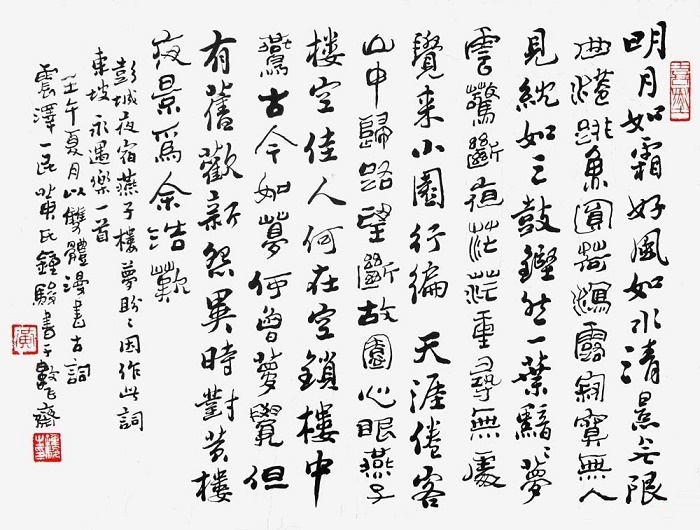 明月如霜好風如水清景无限
曲港跳魚圓荷瀉露寂寞無人
見紞如三鼓鏗然一葉黯〻夢
雲驚斷夜茫茫重尋無處
覺來小園行徧 天涯倦客
山中歸路望斷故園心眼燕子
樓空佳人何在空鎖樓中
燕古今如夢何曾夢覺但
有舊歡新怨異時對黃樓
夜景爲余浩歎
彭城夜宿燕子樓夢盼〻因作此詞
東坡永遇樂一首
壬午夏月以雙體漫書古詞
震澤一民鍾駿書于齋